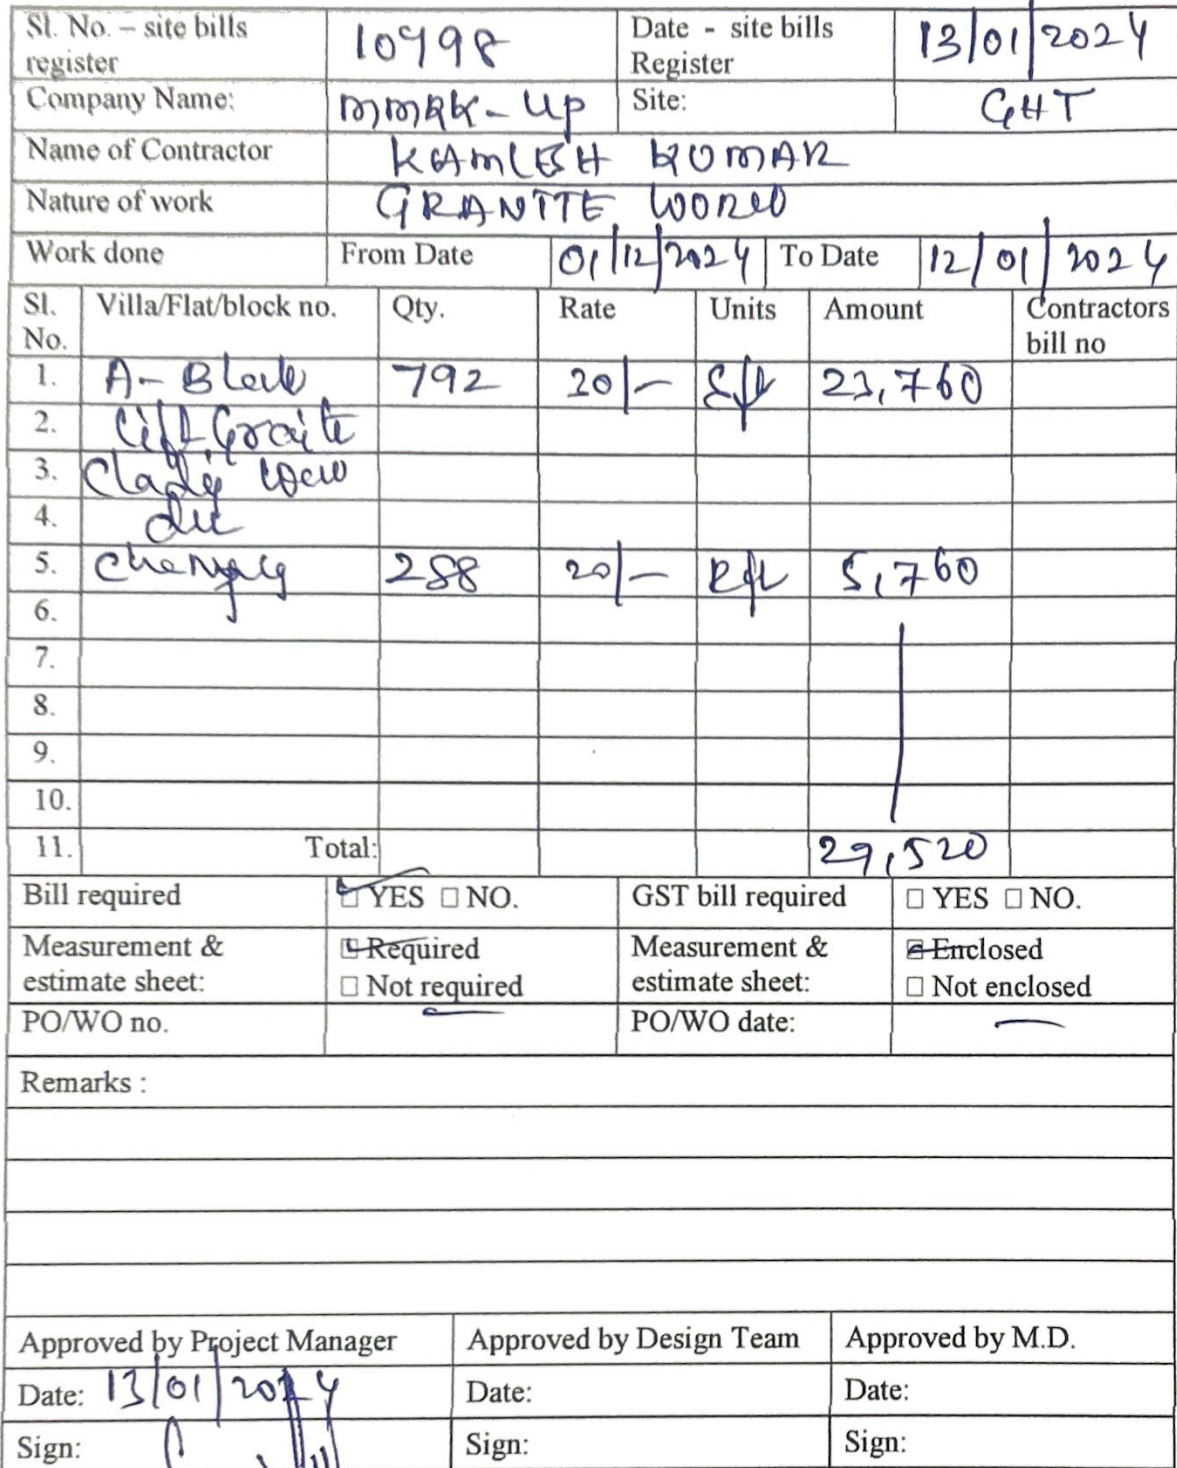 Sl. No. – site bills register 10998 Date - site bills Register 13/01/2024
Company Name: MMRK-UP Site: GHT
Name of Contractor KAMLESH KUMAR
Nature of work GRANITE
Work done From Date 01/12/2024 To Date 12/01/2024
Sl. No. Villa/Flat/block no. Qty. Rate Units Amount Contractors bill no
1. A- Block 792 30/- Sft 23,760
2.
3.
4.
5. 288 20/- Rft 5,760
6.
7.
8.
9.
10.
11. Total: 29,520
Bill required YES NO. GST bill required YES NO.
Measurement & estimate sheet: Required Not required Measurement & estimate sheet: Enclosed Not enclosed
PO/WO no. PO/WO date: —
Remarks :
Approved by Project Manager Approved by Design Team Approved by M.D.
Date: 13/01/2024 Date: Date:
Sign: Sign: Sign: